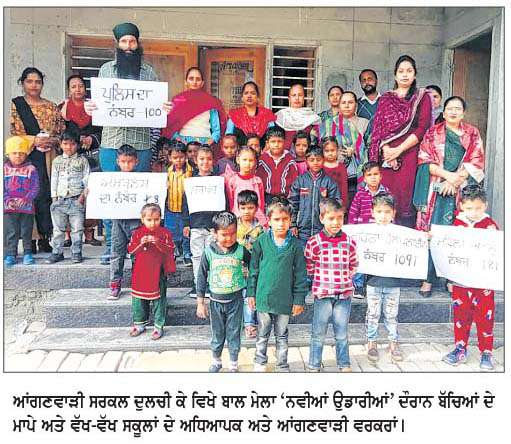 ਪੁਲਿਸ ਦਾ
ਨੰਬਰ 100
ਐਂਬੂਲੈਂਸ
ਦਾ ਨੰਬਰ
ਨੰਬਰ 1091
ਨੰਬਰ 181
ਆਂਗਣਵਾੜੀ ਸਰਕਲ ਦੁਲਚੀ ਕੇ ਵਿਖੇ ਬਾਲ ਮੇਲਾ ‘ਨਵੀਆਂ ਉਡਾਰੀਆਂ’ ਦੌਰਾਨ ਬੱਚਿਆਂ ਦੇ
ਮਾਪੇ ਅਤੇ ਵੱਖ-ਵੱਖ ਸਕੂਲਾਂ ਦੇ ਅਧਿਆਪਕ ਅਤੇ ਆਂਗਣਵਾੜੀ ਵਰਕਰਾਂ।